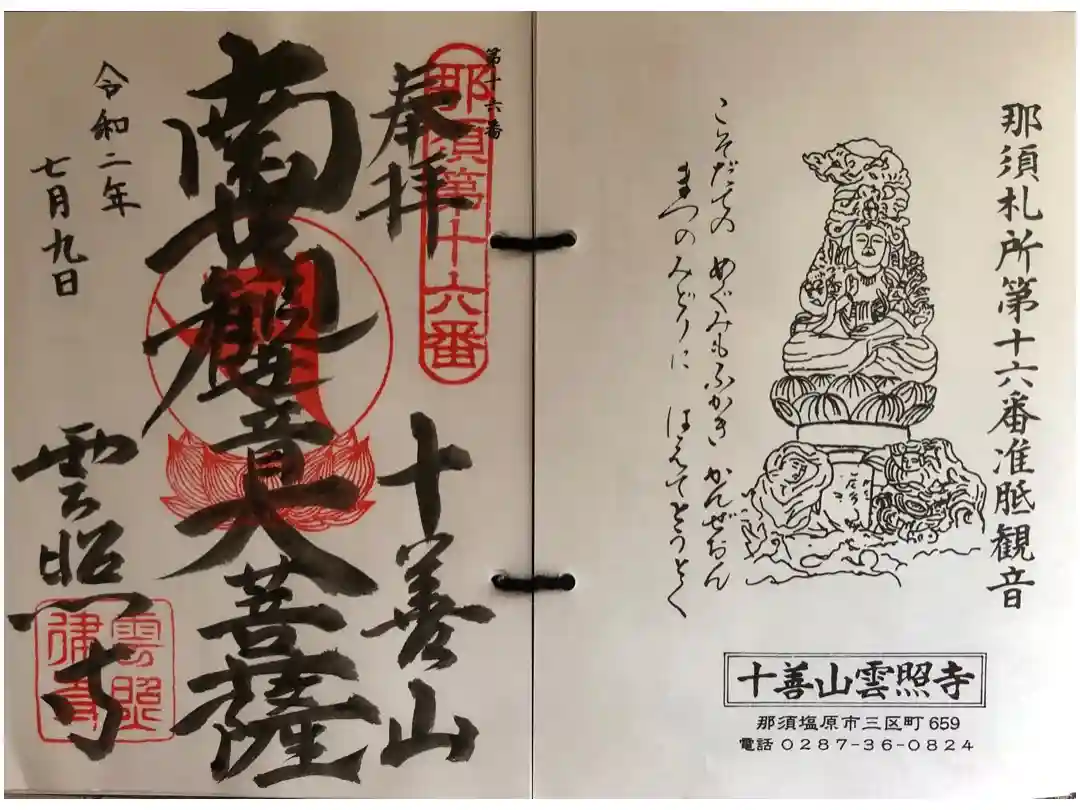 那須札所第十六番准胝観音
こそだての めぐみもふかき かんぜおん
まつのみどりに はえてとうとく
十善山雲照寺
那須塩原市三区町 659
電話 0287-36-0824
第十六番
那須第十六番
奉拝
十善山
南無観世音大菩薩
令和二年
七月九日
雲照寺
雲照
律寺